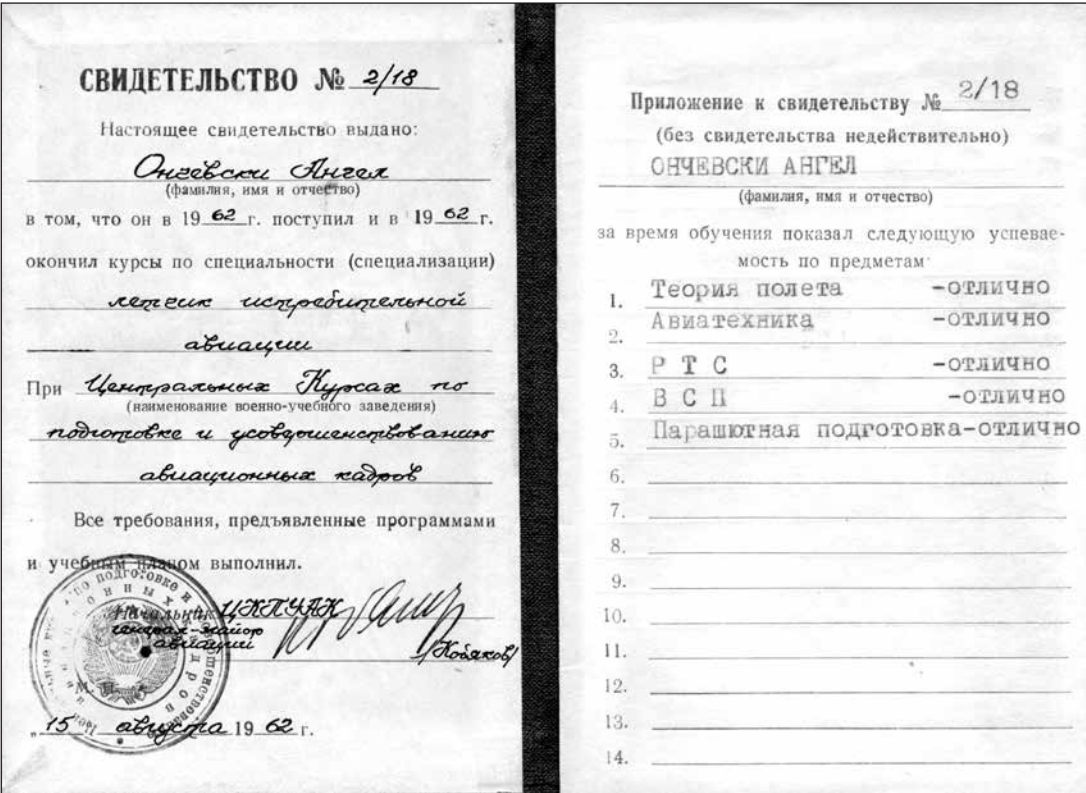 СВИДЕТЕЛЬСТВО № 2/18
Настоящее свидетельство выдано:
Ончевски Ангел
(фамилия, имя и отчество)
в том, что он в 19 62 г. поступил и в 19 62 г.
окончил курсы по специальности (специализации)
летчик истребительной
авиации
При Центральных Курсах по
(наименование военно-учебного заведения)
подготовке и усовершенствованию
авиационных кадров
Все требования, предъявленные программами
и учебным планом выполнил.
Начальник ЦКПУАК
генерал-майор
авиации
/Кобяков/
М. П.
„15 августа 19 62 г.
Приложение к свидетельству № 2/18
(без свидетельства недействительно)
ОНЧЕВСКИ АНГЕЛ
(фамилия, имя и отчество)
за время обучения показал следующую успевае-
мость по предметам
1. Теория полета -отлично
2. Авиатехника -отлично
3. Р Т С -отлично
4. В С П -отлично
5. Парашютная подготовка-отлично
6.
7.
8.
9.
10.
11.
12.
13.
14.